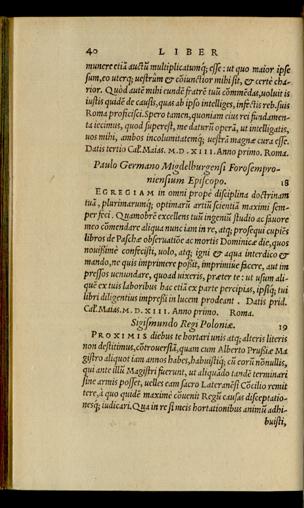 40 LIBER
munere etiā auctū multiplicatumq; esse: ut quo maior ipse
sum, eo uterq; uestrūm & cōiunctior mihi sit, & certè cha-
rior. Quòd autē mihi eundē fratrē tuū cōmēdas, uoluit is
iustis quidē de causis, quas ab ipso intelliges, infectis reb. suis
Roma proficisci. Spero tamen, quoniam eius rei fundamen-
ta iecimus, quod superest, me daturū operā, ut intelligatis,
uos mihi, ambos incolumitatemq; uestrā magnæ curæ esse.
Datis tertio Cal. Maias. M.D.XIII. Anno primo. Roma.
Paulo Germano Migdelburgensi Forosempro-
niensium Episcopo. 18
EGREGIAM in omni propè disciplina doctrinam
tuā, plurimarumq; optimarū artiū scientiā maximi sem-
per feci. Quamobrē excellens tuū ingeniū studio ac fauore
meo cōmendare aliqua nunc iam in re, atq; prosequi cupiēs
libros de Paschæ obseruatiōe ac mortis Dominicæ die, quos
nouissimè confecisti, uolo, atq; igni & aqua interdico &
mando, ne quis imprimere possit, imprimiúe facere, aut im
pressos uenundare, quoad uixeris, præter te: ut usum ali-
quē ex tuis laboribus hac etiā ex parte percipias, ipsiq; tui
libri diligentius impreßi in lucem prodeant. Datis prid.
Cal. Maias. M.D.XIII. Anno primo. Roma.
Sigismundo Regi Poloniæ. 19
PROXIMIS diebus te hortari unis atq; alteris literis
non destitimus, cōtrouersiā, quam cum Alberto Prußiæ Ma
gistro aliquot iam annos habes, habuistiq; cū eorū nōnullis,
qui ante illū Magistri fuerunt, ut aliquādo tandē terminari
sine armis posset, uelles eam sacro Lateranēsi Cōcilio remit
tere, à quo quidē maximè cōuenit Regū causas disceptatio-
nesq; iudicari. Qua in re si meis hortationibus animū adhi-
buisti,